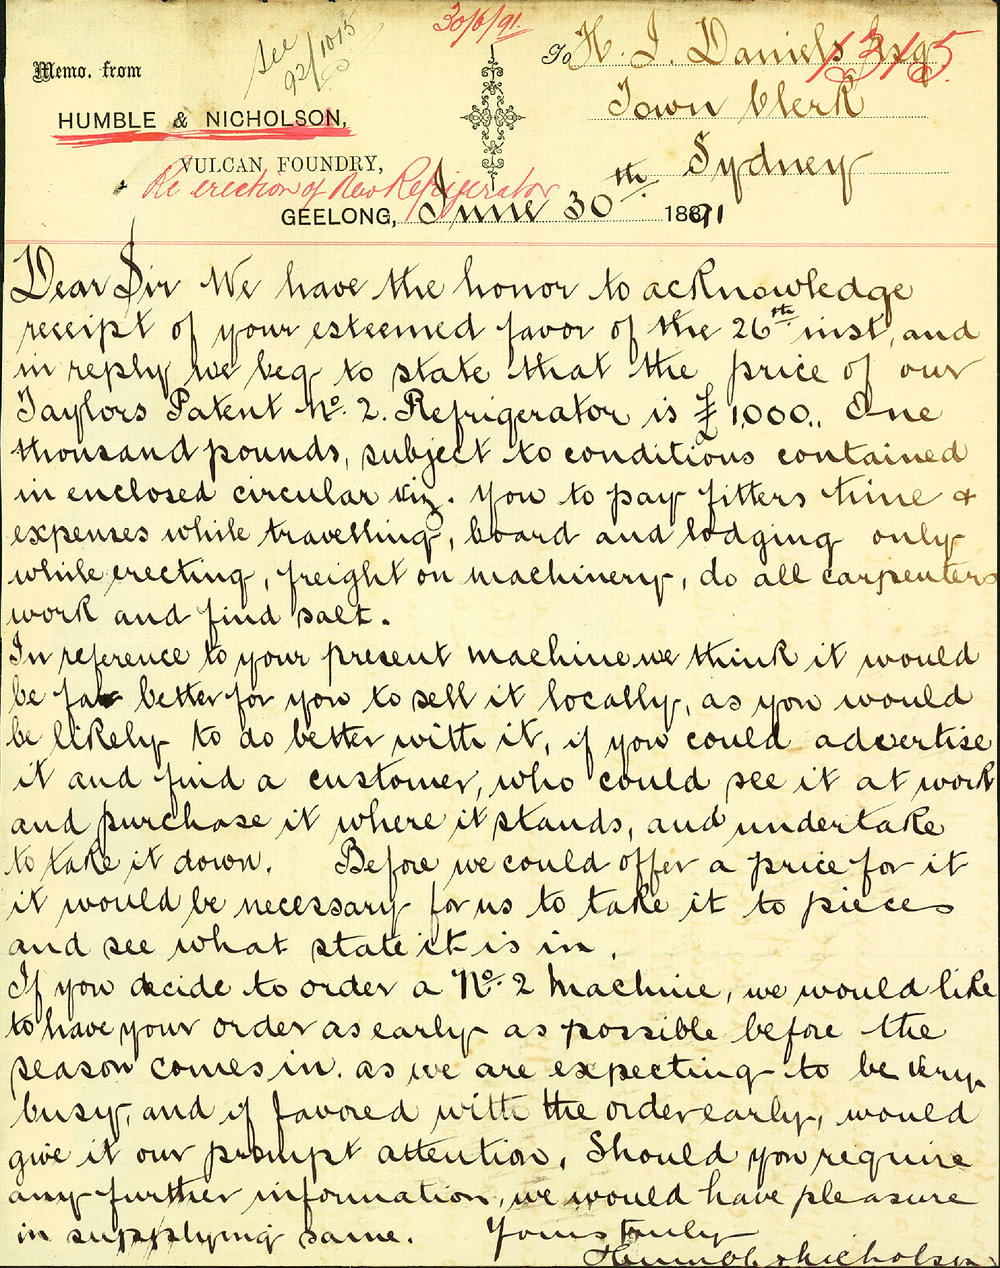 30/6/91.
See
92/1015
1315
Memo. from
To H. J. Daniels Esq
HUMBLE & NICHOLSON,
Town Clerk
VULCAN FOUNDRY,
Sydney
Re erection of New Refrigerator
GEELONG, June 30th 1891
Dear Sir We have the honor to acknowledge
receipt of your esteemed favor of the 26th inst, and
in reply we beg to state that the price of our
Taylors Patent No. 2. Refrigerator is £1,000.. One
thousand pounds, subject to conditions contained
in enclosed circular viz. You to pay fitters time &
expenses while travelling, board and lodging only
while erecting, freight on machinery, do all carpenters
work and find salt.
In reference to your present machine we think it would
be far better for you to sell it locally, as you would
be likely to do better with it, if you could advertise
it and find a customer, who could see it at work
and purchase it where it stands, and undertake
to take it down. Before we could offer a price for it
it would be necessary for us to take it to pieces
and see what state it is in.
If you decide to order a No. 2 Machine, we would like
to have your order as early as possible before the
season comes in. as we are expecting to be very
busy, and if favored with the order early, would
give it our prompt attention. Should you require
any further information, we would have pleasure
in supplying same. Yours truly
Humble & Nicholson